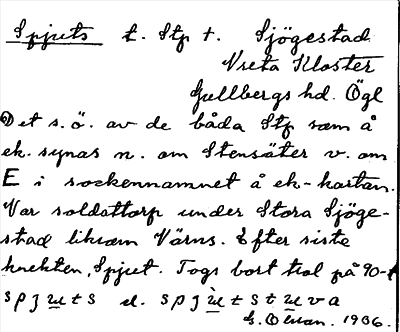 Spjuts t. Stp t. Sjögestad
Vreta Kloster
Gullbergs hd. Ögl
Det s.ö. av de båda Stp som å
ek. synas n. om Stensäter v. om
E i sockennamnet å ek-kartan.
Var soldattorp under Stora Sjöge-
stad liksom Värns. Efter siste
knekten, Spjut. Togs bort trol på 90-t
spjuts el. spjutstuva
G. 1936.